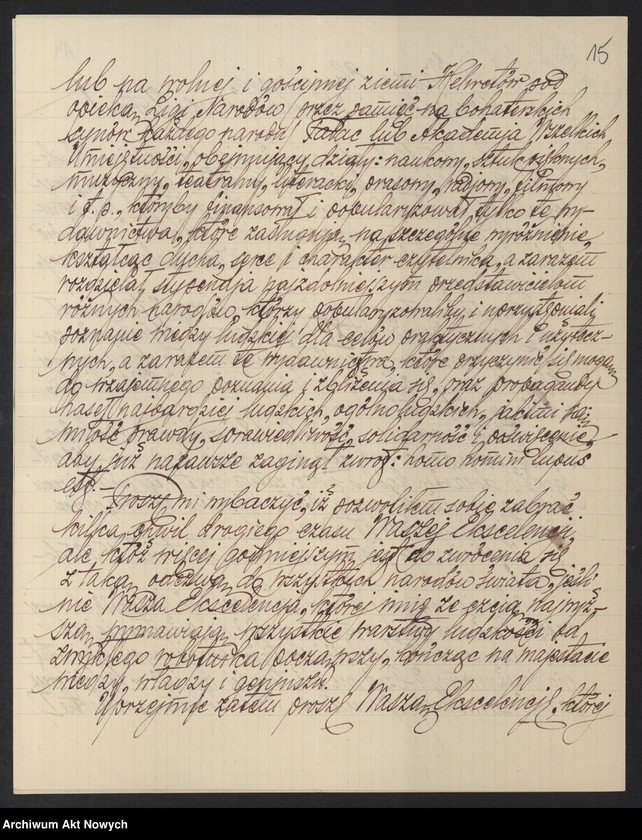 15
lub na wolnej i gościnnej ziemi Helwetów pod
opieką Ligi Narodów przez pamięć na bohaterskich
synów każdego narodu Pałac lub Akademja Wszelkich
Umiejętności, obejmujący działy: naukowy, sztuk pięknych,
muzyczny, teatralny, literacki, prasowy, radjowy, filmowy
i t. p., któryby finansował i popularyzował tylko te wy-
dawnictwa, które zasługują na szczególne wyróżnienie,
kształcąc ducha, serce i charakter czytelnika, a zarazem
rozdzielał stypendja najzdolniejszym przedstawicielom
różnych narodów, którzy popularyzowaliby i uprzystępniali
poznanie wiedzy ludzkiej dla celów praktycznych i użytecz-
nych, a zarazem te wydawnictwa, które przyczynić się mogą
do wzajemnego poznania i zbliżenia się, oraz propagandy
haseł najbardziej ludzkich, ogólnoludzkich, jakimi są:
miłość prawdy, sprawiedliwość, solidarność i poświęcenie,
aby już nazawsze zaginął zwrot: homo homini lupus
est.—
Proszę mi wybaczyć, iż pozwoliłem sobie zabrać
kilka chwil drogiego czasu Waszej Ekscelencji,
ale któż więcej godniejszym jest do zwrócenia się
z taką odezwą do wszystkich narodów świata, jeśli
nie Wasza Ekscelencja, której imię ze czcią najwyż-
szą wymawiają wszystkie warstwy ludzkości od
zwykłego robotnika począwszy, kończąc na majestacie
wiedzy, władzy i genjuszu.
Uprzejmie zatem proszę Waszą Ekscelencję, której
Archiwum Akt Nowych